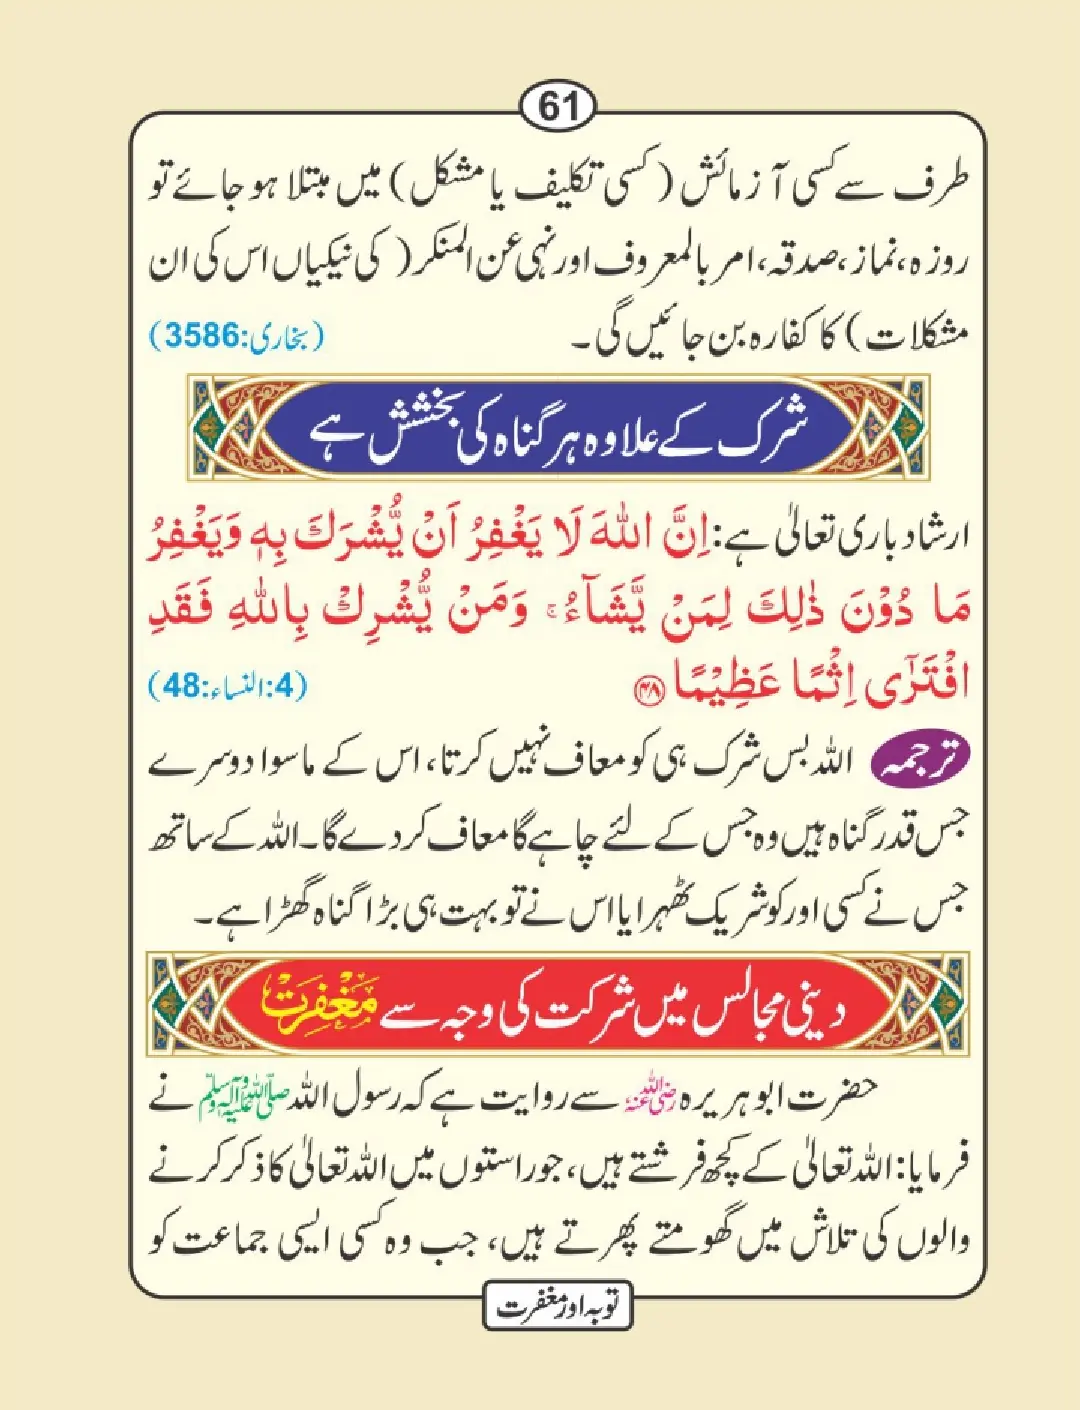 61
طرف سے کسی آزمائش (کسی تکلیف یا مشکل) میں مبتلا ہو جائے تو
روزہ، نماز، صدقہ، امر بالمعروف اور نہی عن المنکر( کی نیکیاں اس کی ان
مشکلات) کا کفارہ بن جائیں گی۔ (بخاری:3586)
شرک کے علاوہ ہر گناہ کی بخشش ہے
ارشاد باری تعالیٰ ہے: اِنَّ اللّٰهَ لَا یَغْفِرُ اَنْ یُّشْرَكَ بِهٖ وَیَغْفِرُ
مَا دُوْنَ ذٰلِكَ لِمَنْ یَّشَآءُ ۚ وَمَنْ یُّشْرِكْ بِاللّٰهِ فَقَدِ
افْتَرٰۤی اِثْمًا عَظِیْمًا ﴿۴۸﴾ (4:النساء:48)
ترجمہ اللہ بس شرک ہی کو معاف نہیں کرتا، اس کے ماسوا دوسرے
جس قدر گناہ ہیں وہ جس کے لئے چاہے گا معاف کر دے گا۔ اللہ کے ساتھ
جس نے کسی اور کو شریک ٹھہرایا اس نے تو بہت ہی بڑا گناہ گھڑا ہے۔
دینی مجالس میں شرکت کی وجہ سے مَغْفِرَت
حضرت ابو ہریرہ رضی اللہ عنہ سے روایت ہے کہ رسول اللہ صلی اللہ علیہ وآلہ وسلم نے
فرمایا: اللہ تعالیٰ کے کچھ فرشتے ہیں، جو راستوں میں اللہ تعالیٰ کا ذکر کرنے
والوں کی تلاش میں گھومتے پھرتے ہیں، جب وہ کسی ایسی جماعت کو
توبہ اور مغفرت